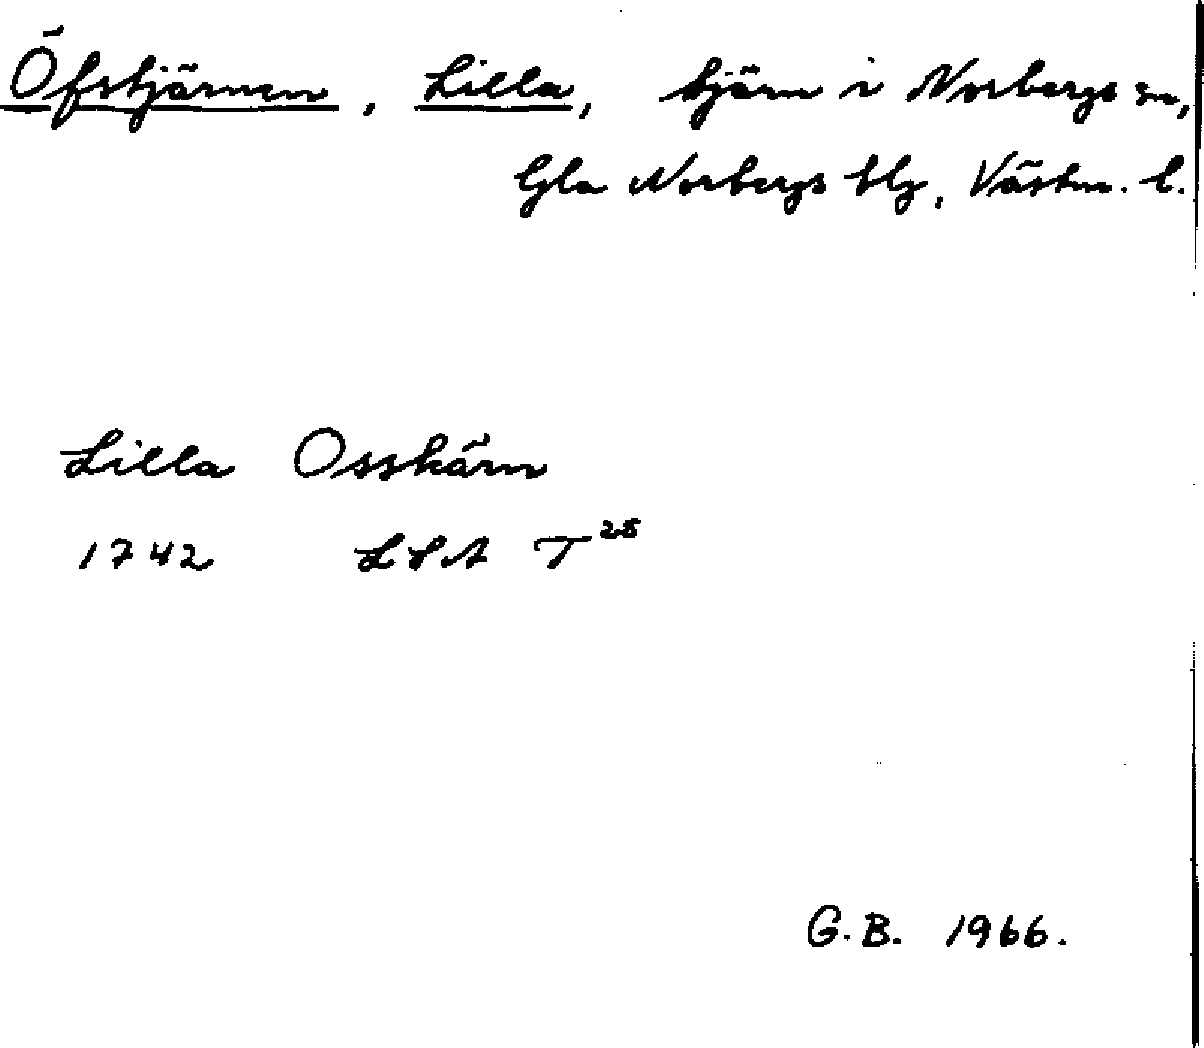 Öfstjärnen, Lilla, tjärn i Norbergs sn,
Gla Norbergs blg, Västm. l.
Lilla Osskärn
1742 LSA T 25
G.B. 1966.